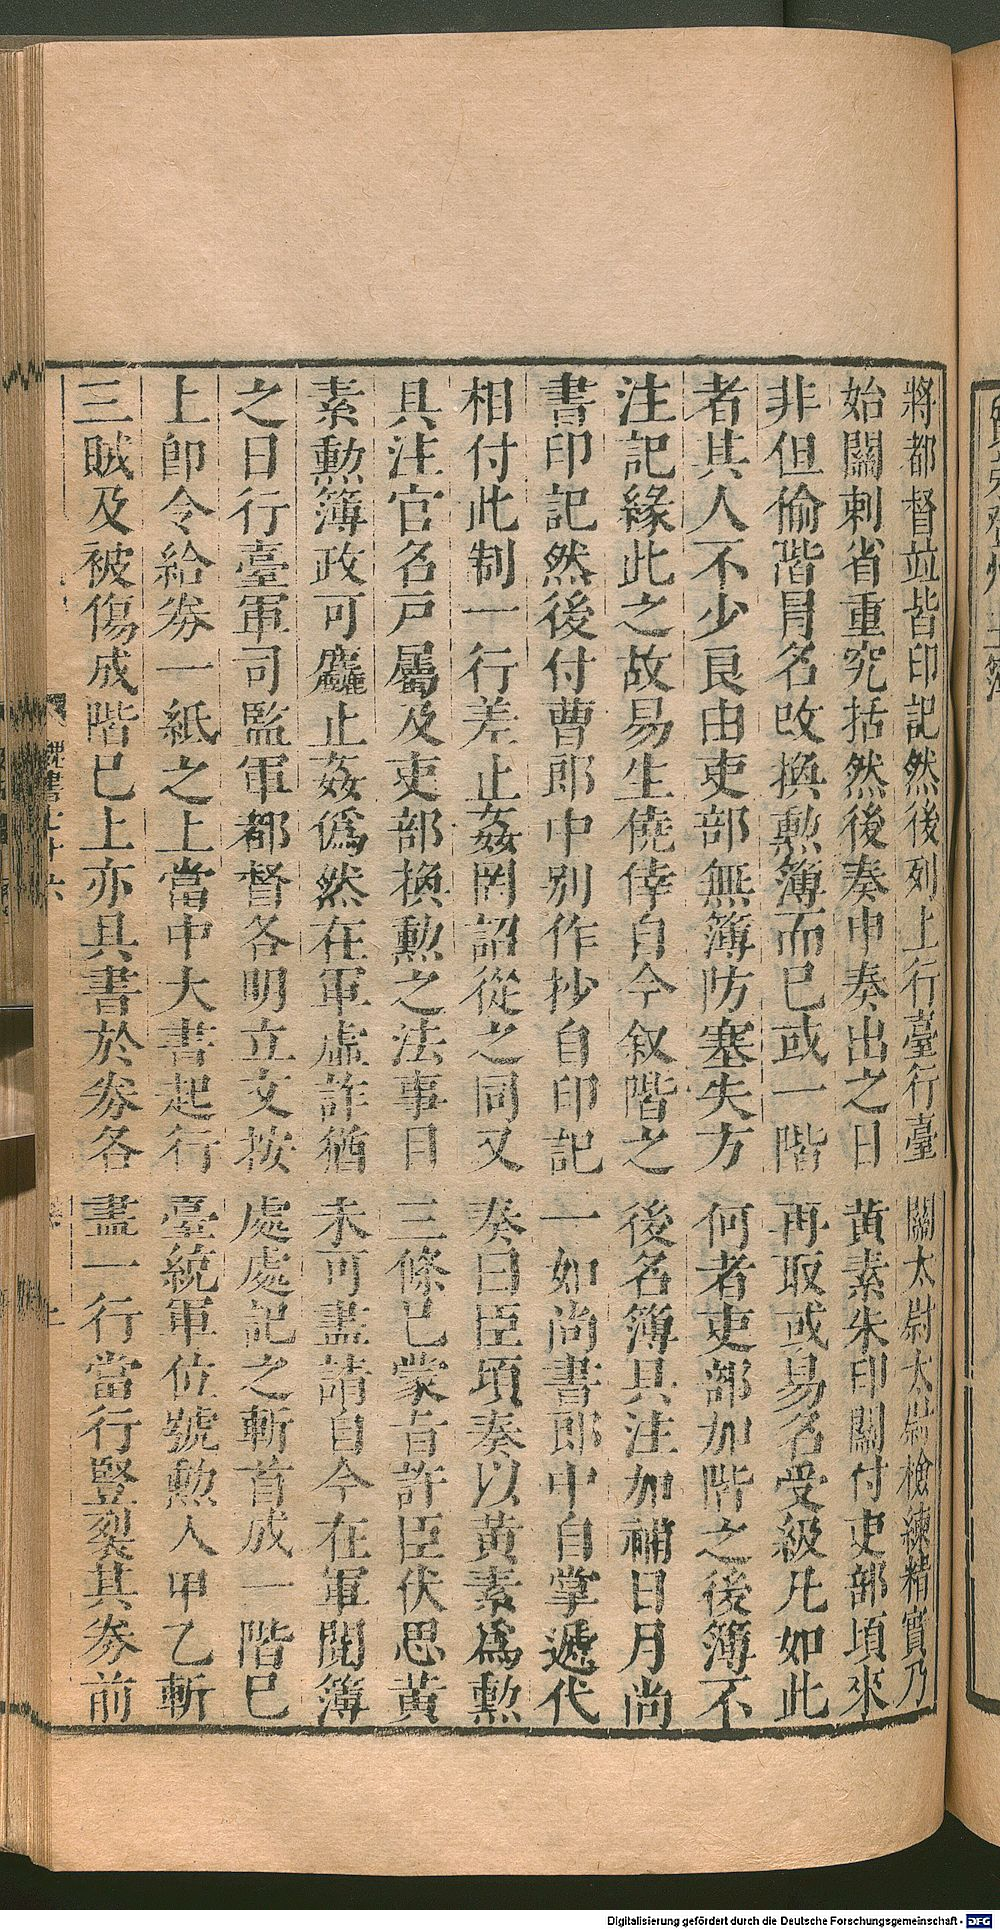 將都督竝皆印記然後列上行臺行臺關太尉太尉檢練精實乃
始關刺省重究括然後奏申奏出之日黃素朱印關付吏部頃來
非但偷階冒名改換勲簿而已或一階再取或易名受級凡如此
者其人不少良由吏部無簿防塞失方何者吏部加階之後簿不
注記緣此之故易生僥倖自今叙階之後名簿具注加補日月尚
書印記然後付曹郎中別作抄自印記一如尚書郎中自掌遞代
相付此制一行差止姦罔詔從之同又奏曰臣頃奏以黃素爲勲
具注官名戸屬及吏部換勲之法事目三條已蒙旨許臣伏思黃
素勲簿政可麤止姦僞然在軍虛詐猶未可盡請自今在軍閱簿
之日行臺軍司監軍都督各明立文按處處記之斬首成一階已
上卽令給劵一紙之上當中大書起行臺統軍位號勲人甲乙斬
三賊及被傷成階已上亦具書於劵各盡一行當行竪裂其劵前
魏書七十六
Digitalisierung gefördert durch die Deutsche Forschungsgemeinschaft - DFG